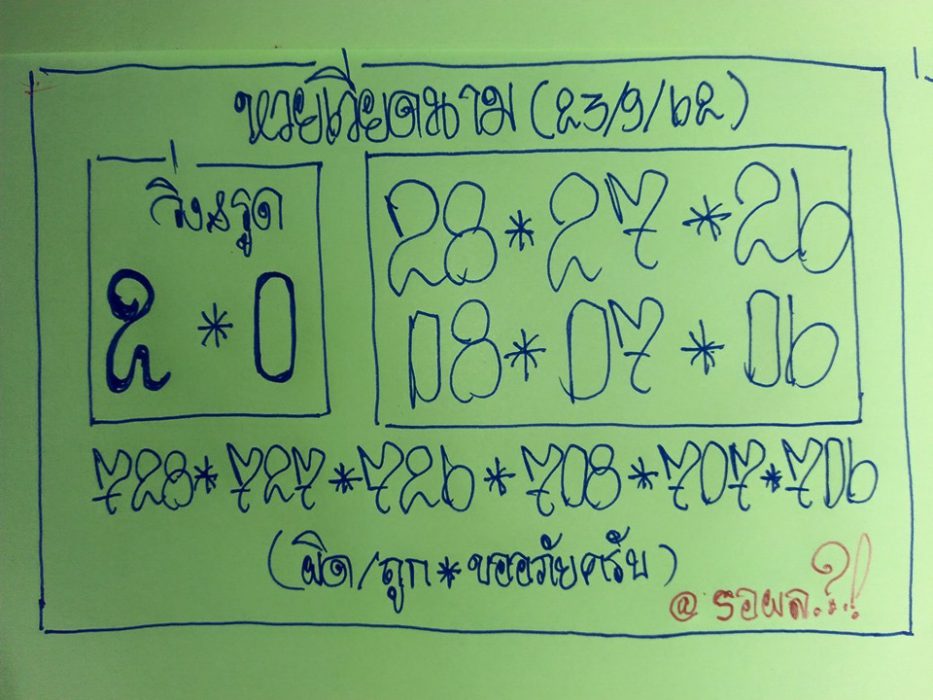 หวยเวียดนาม (23/9/62)
วิ่งรูด
2 * 0
28 * 27 * 26
08 * 07 * 06
728 * 727 * 726 * 708 * 707 * 706
(ผิด/ถูก * ขออภัยครับ)
@ รอผล.?.!